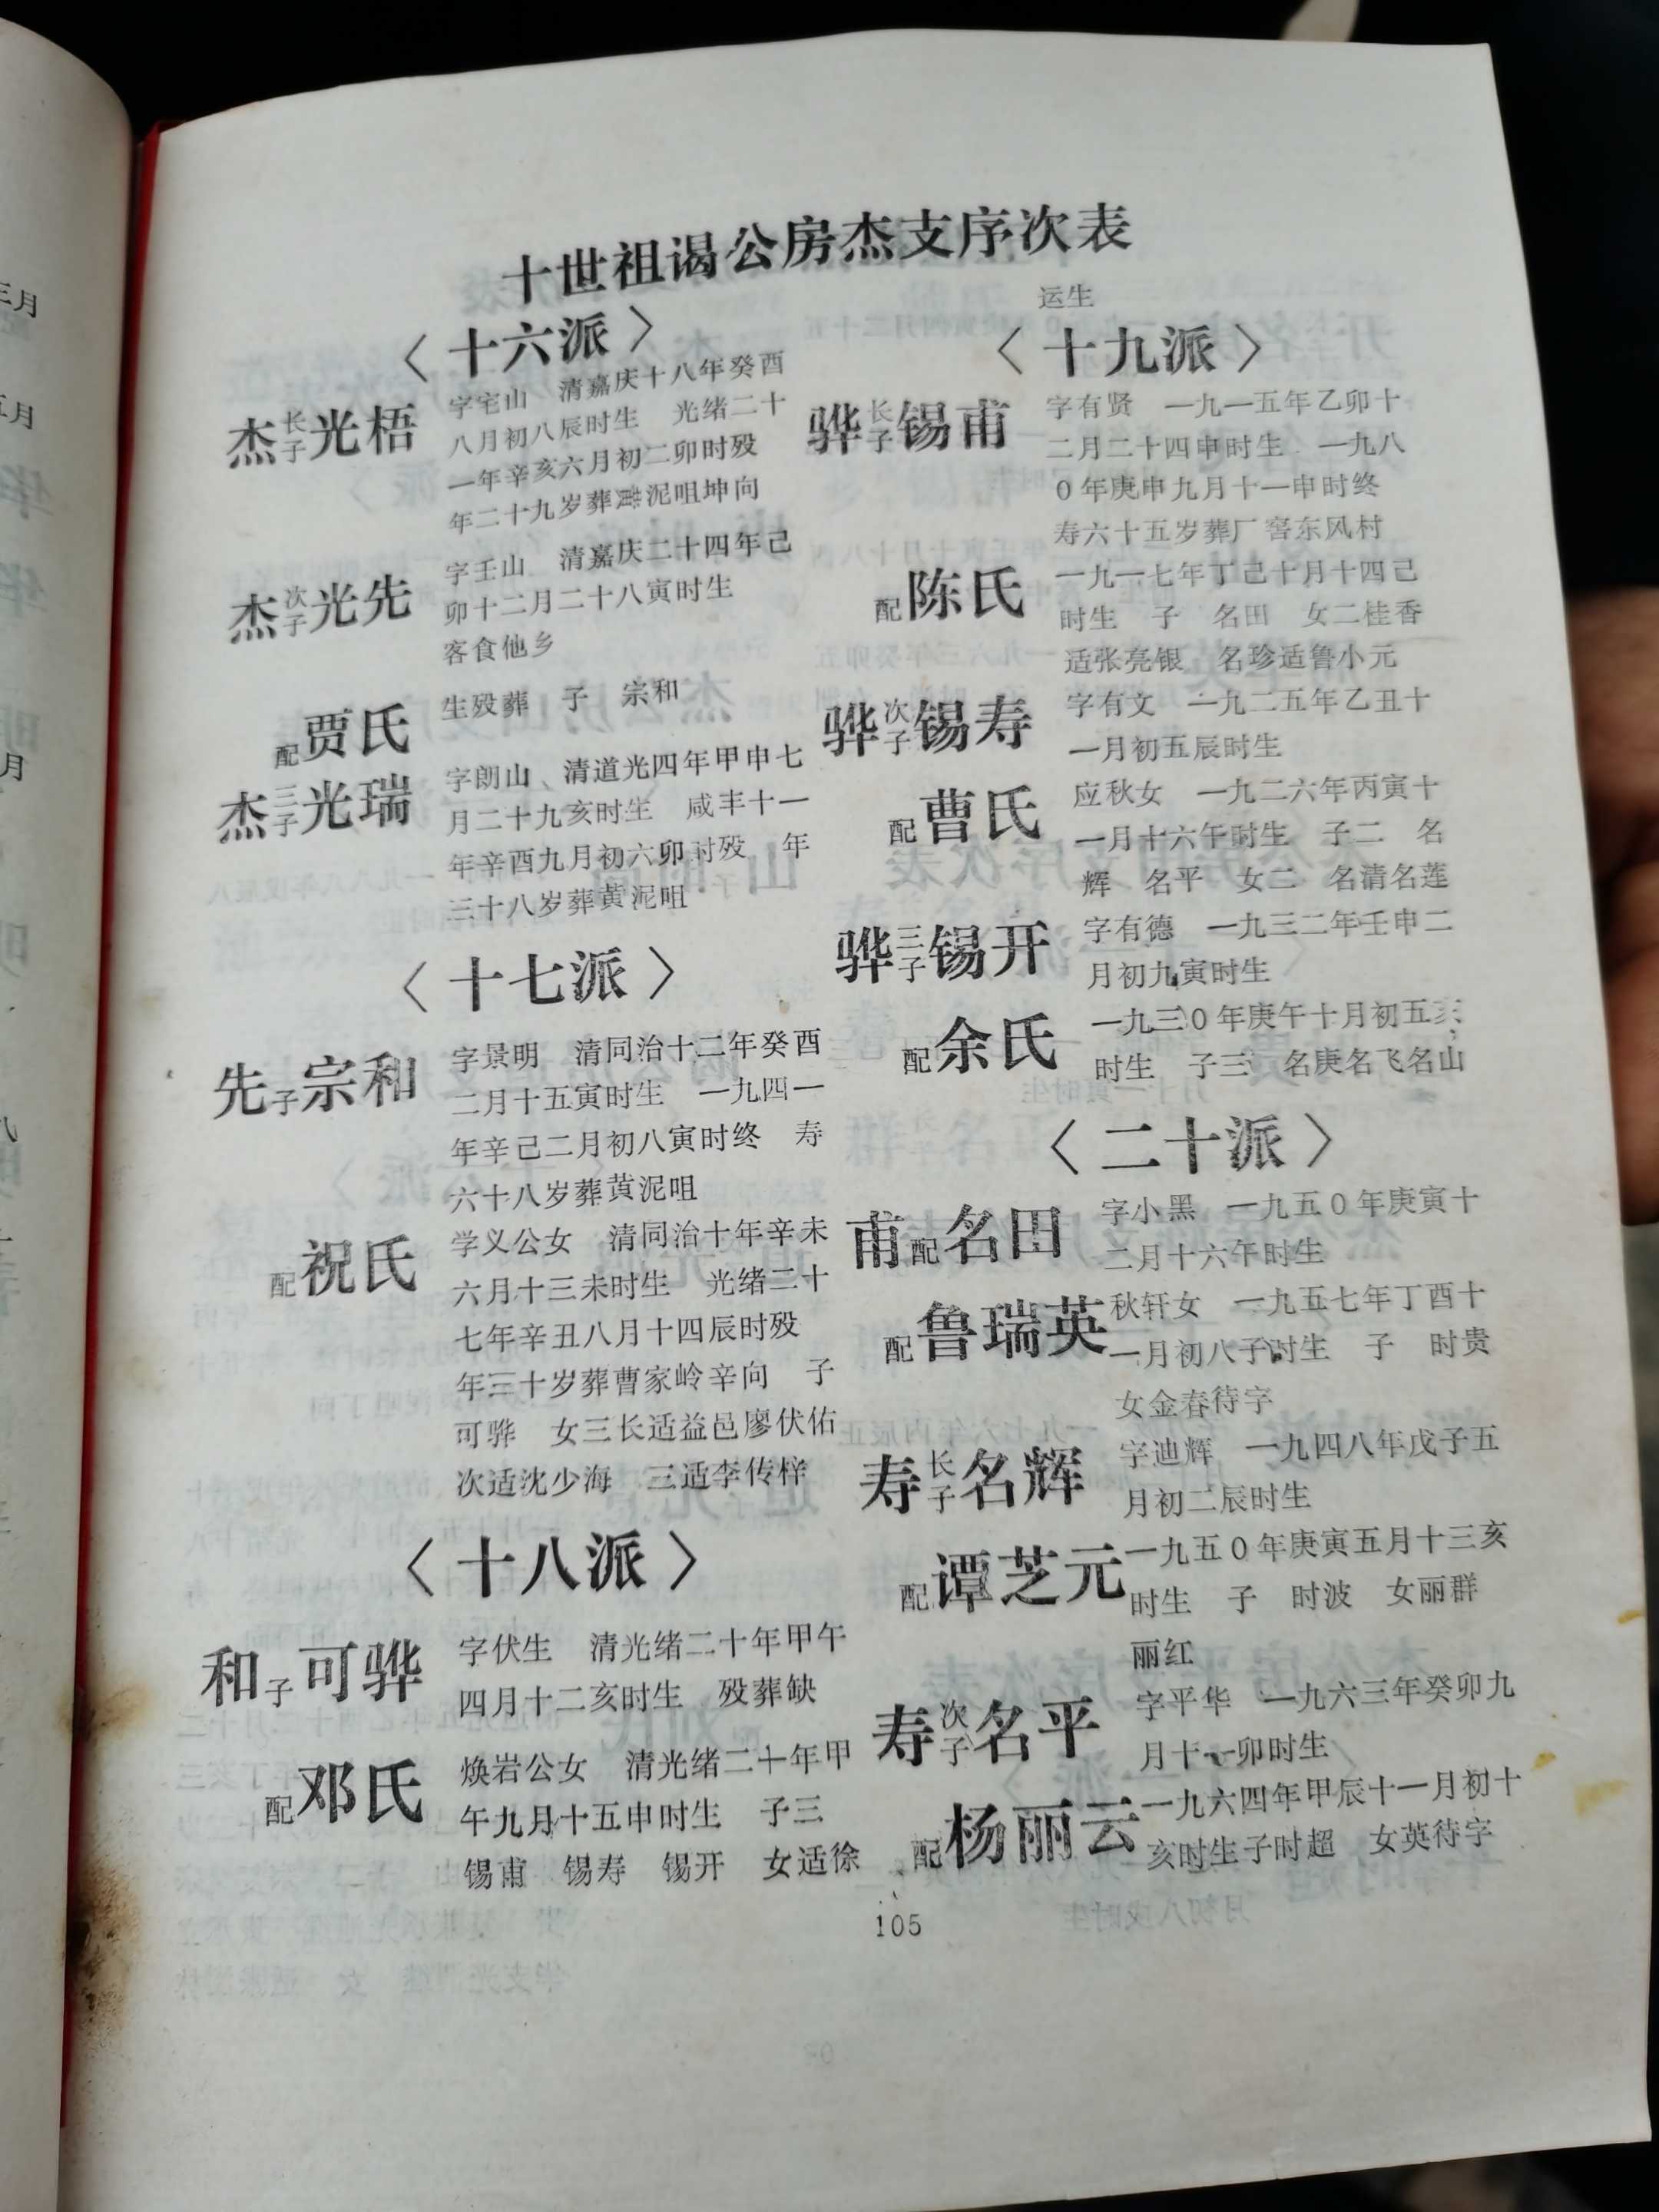 十世祖谒公房杰支序次表
〈十六派〉
杰长子光梧 字宅山 清嘉庆十八年癸酉
八月初八辰时生 光绪二十
一年辛亥六月初二卯时殁
年二十九岁葬泥咀坤向
杰次子光先 字壬山 清嘉庆二十四年己
卯十二月二十八寅时生
客食他乡
配贾氏 生殁葬 子 宗和
杰三子光瑞 字朗山、清道光四年甲申七
月二十九亥时生 咸丰十一
年辛酉九月初六卯时殁 年
三十八岁葬黄泥咀
〈十七派〉
先子宗和 字景明 清同治十二年癸酉
二月十五寅时生 一九四一
年辛己二月初八寅时终 寿
六十八岁葬黄泥咀
配祝氏 学义公女 清同治十年辛未
六月十三未时生 光绪二十
七年辛丑八月十四辰时殁
年三十岁葬曹家岭辛向 子
可骅 女三长适益邑廖伏佑
次适沈少海 三适李传梓
〈十八派〉
和子可骅 字伏生 清光绪二十年甲午
四月十二亥时生 殁葬缺
配邓氏 焕岩公女 清光绪二十年甲
午九月十五申时生 子三
锡甫 锡寿 锡开 女适徐
运生
〈十九派〉
骅长子锡甫 字有贤 一九一五年乙卯十
二月二十四申时生 一九八
0年庚申九月十一申时终
寿六十五岁葬厂窖东风村
配陈氏 一九一七年丁己十月十四己
时生 子 名田 女二桂香
适张亮银 名珍适鲁小元
骅次子锡寿 字有文 一九二五年乙丑十
一月初五辰时生
配曹氏 应秋女 一九二六年丙寅十
一月十六午时生 子二 名
辉 名平 女二 名清名莲
骅三子锡开 字有德 一九三二年壬申二
月初九寅时生
配余氏 一九三0年庚午十月初五亥
时生 子三 名庚名飞名山
〈二十派〉
甫配名田 字小黑 一九五0年庚寅十
二月十六午时生
配鲁瑞英 秋轩女 一九五七年丁酉十
一月初八子时生 子 时贵
女金春待字
寿长子名辉 字迪辉 一九四八年戊子五
月初二辰时生
配谭芝元 一九五0年庚寅五月十三亥
时生 子 时波 女丽群
丽红
寿次子名平 字平华 一九六三年癸卯九
月十一卯时生
配杨丽云 一九六四年甲辰十一月初十
亥时生子时超 女英待字
105